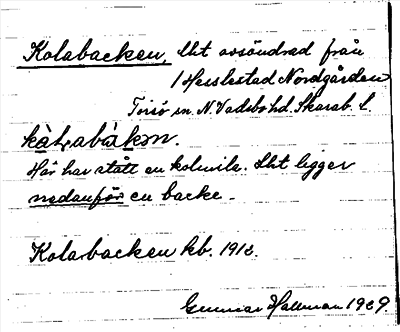 Kolabacken, lht avsöndrad från
1 Hesslestad Nordgården
Torsö sn. N. Vadsbo hd. Skarab. l.
kà̀ɫabàkən.
Här har stått en kolmila. Lht ligger
nedanför en backe.
Kolarbacken kb. 1912.
Gunnar Hallman 1929.